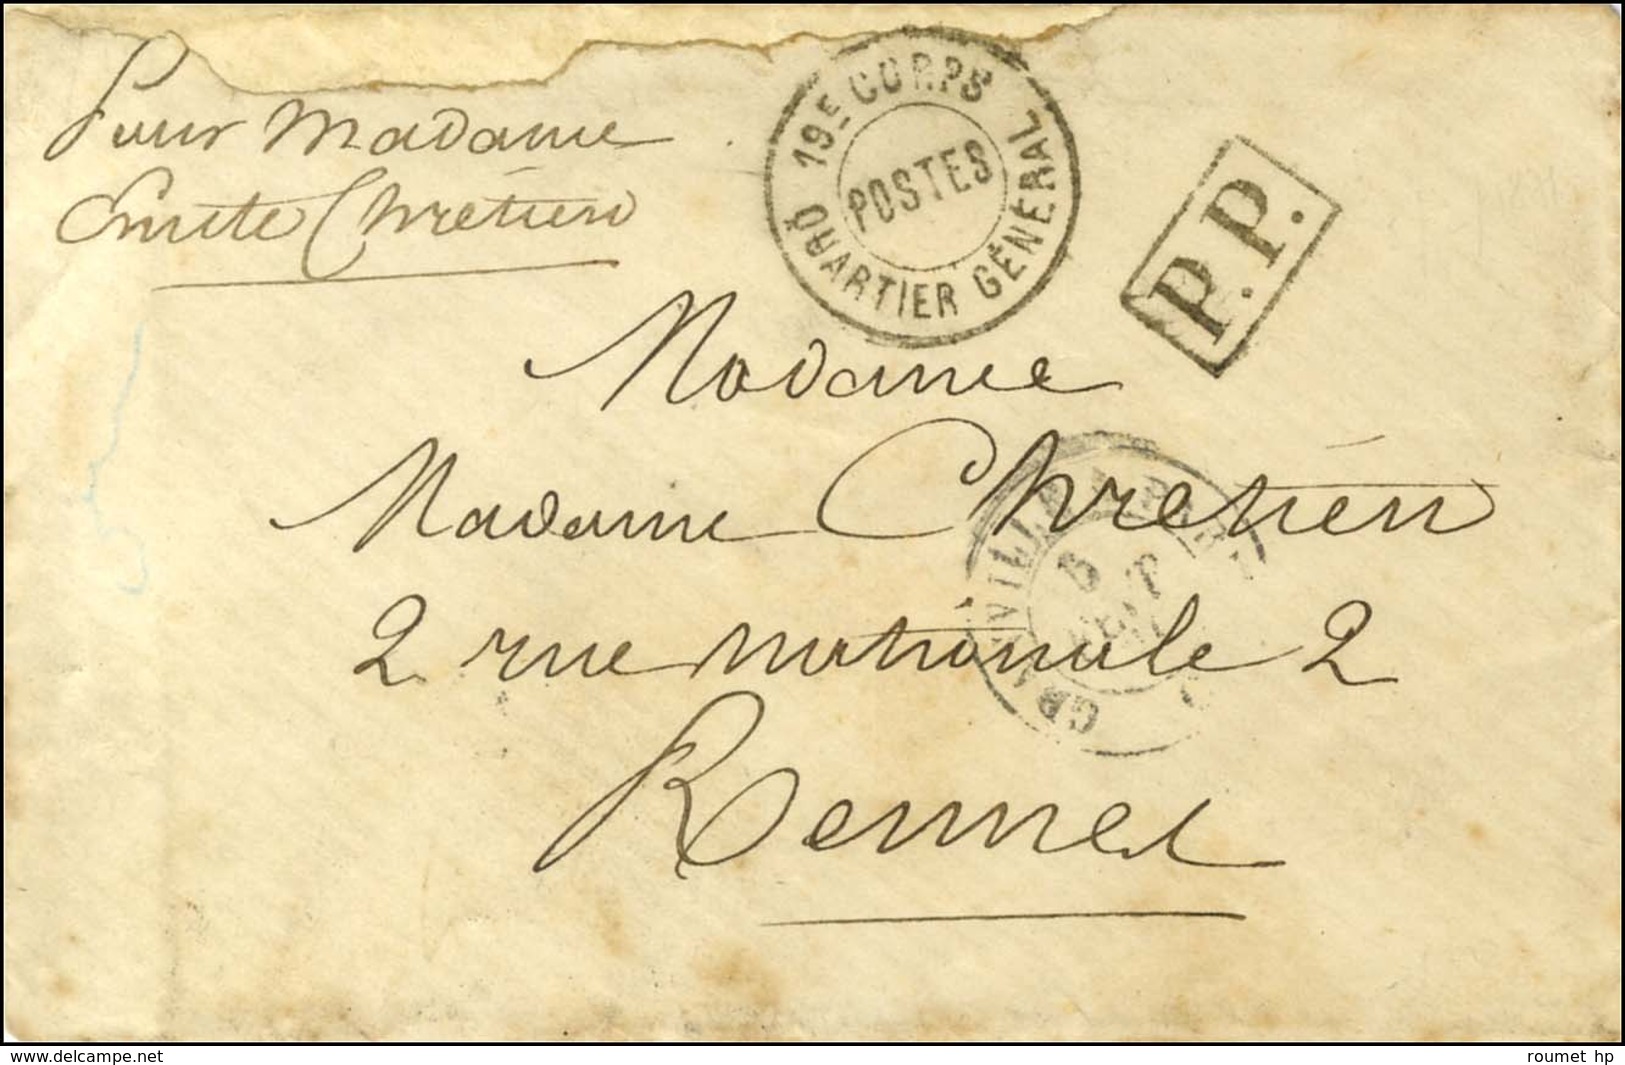 Pour Madame
Emile Chrétien
19E CORPS
POSTES
QUARTIER GÉNÉRAL
P.P.
Madame
Madame Chrétien
2 rue nationale 2
Rennes
www.delcampe.net
roumet hp